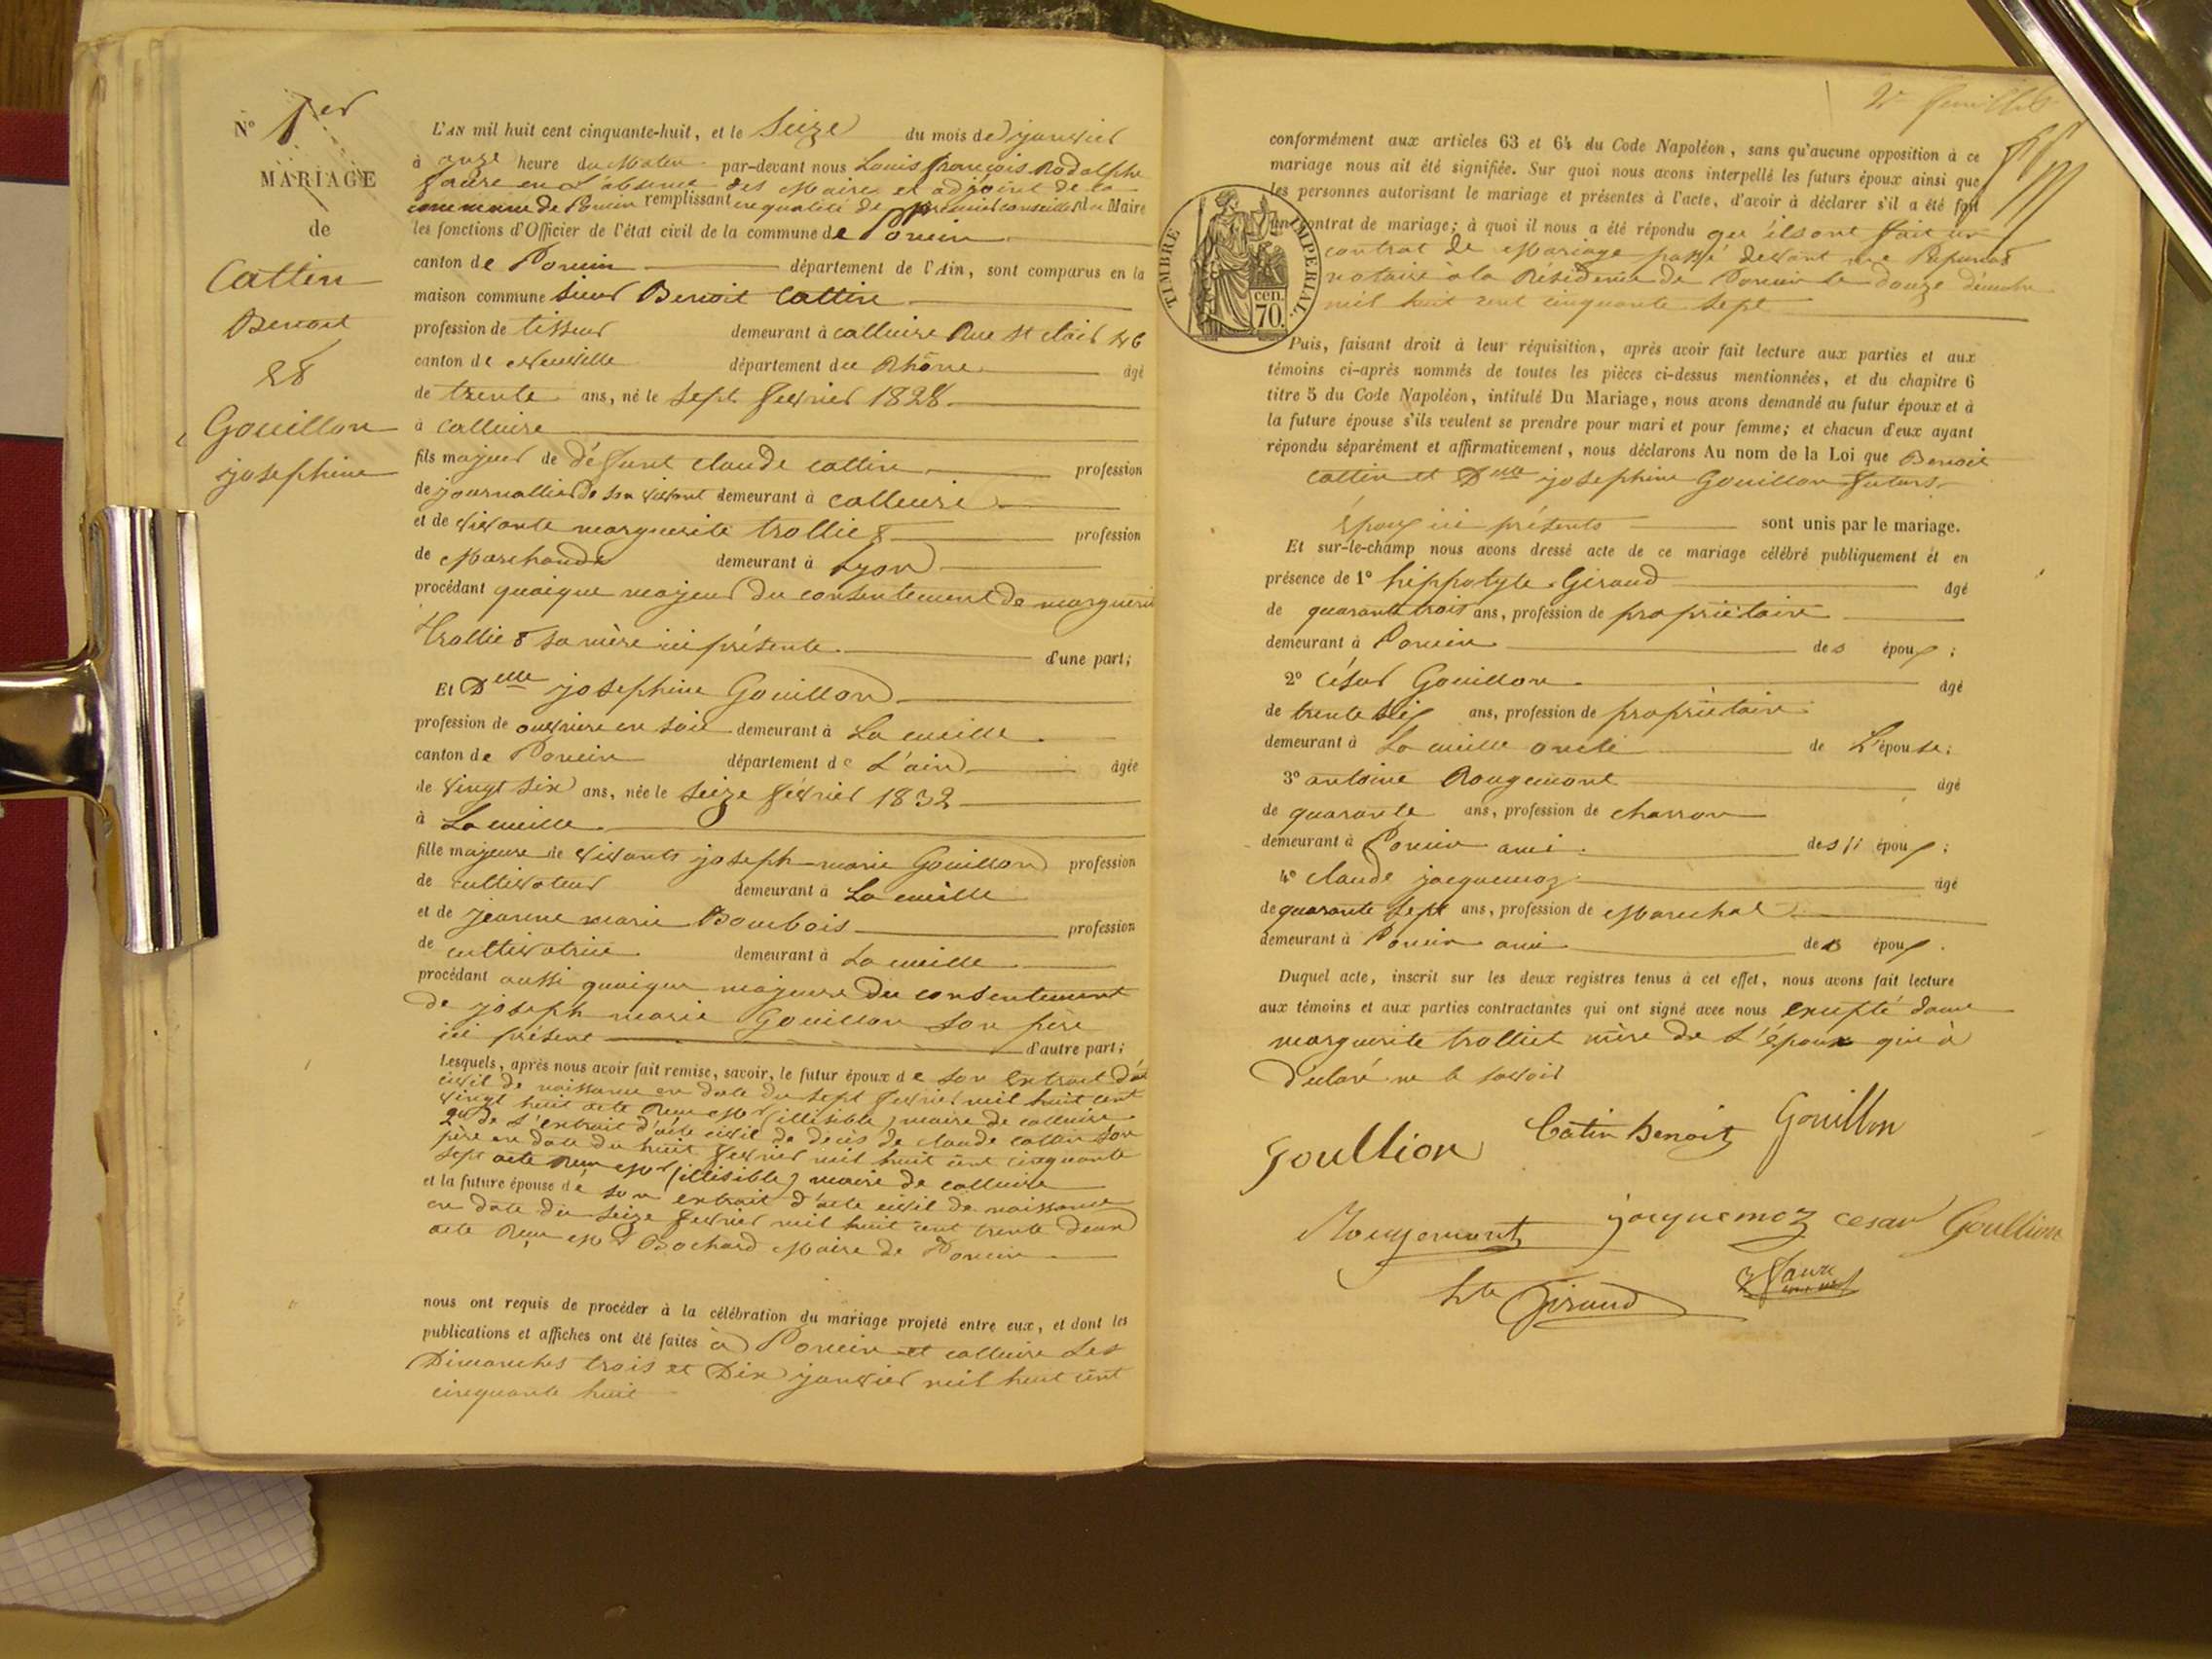 N° 1er
MARIAGE
de
Cattin
Benoit
&
Gouillon
josephine
L'AN mil huit cent cinquante-huit, et le Seize du mois de janvier
à onze heure du Matin par-devant nous Louis françois Rodolphe
faure en L'absence des Maire et adjoint de la
commune de Poncin remplissant en qualité de premier conseiller du Maire
les fonctions d'Officier de l'état civil de la commune de Poncin
canton de Poncin département de l'Ain, sont comparus en la
maison commune Sieur Benoit Cattin
profession de tisseur demeurant à calluire Rue St clair
canton de Neuville département du Rhône âgé
de trente ans, né le sept fevrier 1828
à Calluire
fils majeur de défunt Claude cattin profession
de journallier de son vivant demeurant à calluire
et de vivante marguerite trollier profession
de Marchande demeurant à Lyon
procédant quoique majeur du consentement de marguerite
trollier sa mère ici présente d'une part;
Et Delle josephine Gouillon
profession de ouvriere en soie demeurant à La cueille
canton de Poncin département de L'ain âgée
de vingt six ans, née le seize fevrier 1832
à La cueille
fille majeure de vivants joseph-marie Gouillon profession
de cultivateur demeurant à La cueille
et de jeanne marie Bombois profession
de cultivatrice demeurant à La cueille
procédant aussi quoique majeure du consentement
de joseph marie Gouillon son père
ici présent d'autre part;
Lesquels, après nous avoir fait remise, savoir, le futur époux de son Extrait d'acte
civil de naissance en date du sept fevrier mil huit cent
vingt huit acte Reçu Mr (illisible) maire de calluire
2° de L'extrait d'acte civil de décès de claude cattin son
père en date du huit fevrier mil huit cent cinquante
sept acte reçu Mr (illisible) maire de calluire
et la future épouse de son extrait d'acte civil de naissance
en date du seize fevrier mil huit cent trente deux
acte Reçu Mr Bochard Maire de Poncin
nous ont requis de procéder à la célébration du mariage projeté entre eux, et dont les
publications et affiches ont été faites à Poncin et calluire Les
Dimanches trois et Dix janvier mil huit cent
cinquante huit
conformément aux articles 63 et 64 du Code Napoléon, sans qu'aucune opposition à ce
mariage nous ait été signifiée. Sur quoi nous avons interpellé les futurs époux ainsi que
les personnes autorisant le mariage et présentes à l'acte, d'avoir à déclarer s'il a été fait
un contrat de mariage; à quoi il nous a été répondu qu'ils ont fait un
contrat de Mariage passé devant me
notaire à la Résidence de Poncin le douze décembre
mil huit cent cinquante sept
TIMBRE IMPERIAL
cen.
70.
Puis, faisant droit à leur réquisition, après avoir fait lecture aux parties et aux
témoins ci-après nommés de toutes les pièces ci-dessus mentionnées, et du chapitre 6
titre 5 du Code Napoléon, intitulé Du Mariage, nous avons demandé au futur époux et à
la future épouse s'ils veulent se prendre pour mari et pour femme; et chacun d'eux ayant
répondu séparément et affirmativement, nous déclarons Au nom de la Loi que Benoit
cattin et Delle josephine Gouillon futurs
époux ici présents sont unis par le mariage.
Et sur-le-champ nous avons dressé acte de ce mariage célébré publiquement et en
présence de 1° hippolyte Giraud âgé
de quarante trois ans, profession de propriétaire
demeurant à Poncin des époux;
2° César Gouillon âgé
de trente six ans, profession de propriétaire
demeurant à La cueille oncle de L'épouse;
3° antoine Rougemont âgé
de quarante ans, profession de charron
demeurant à Poncin ami des époux;
4° claude jacquemoz âgé
de quarante sept ans, profession de Marechal
demeurant à Poncin ami des époux.
Duquel acte, inscrit sur les deux registres tenus à cet effet, nous avons fait lecture
aux témoins et aux parties contractantes qui ont signé avec nous excepté dame
marguerite trolliet mère de L'époux qui à
déclaré ne le savoir
Goullion Catin Benoit Gouillon
Rougemont jacquemoz cesar Goullion
hte Giraud Faure